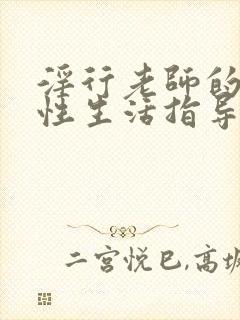 淫行老師的
性生活指导
二宫悦巳,高坂